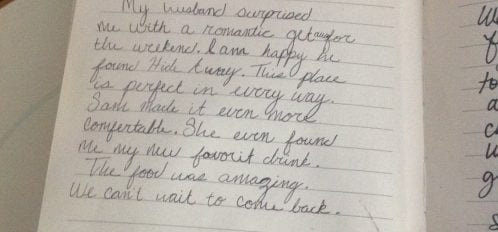 My husband surprised
me with a romantic getaway for
the weekend. I am happy he
found Hide Away. This place
is perfect in every way.
Sam made it even more
comfertable. She even found
me my new favorit drink.
The food was amazing.
We can't wait to come back.